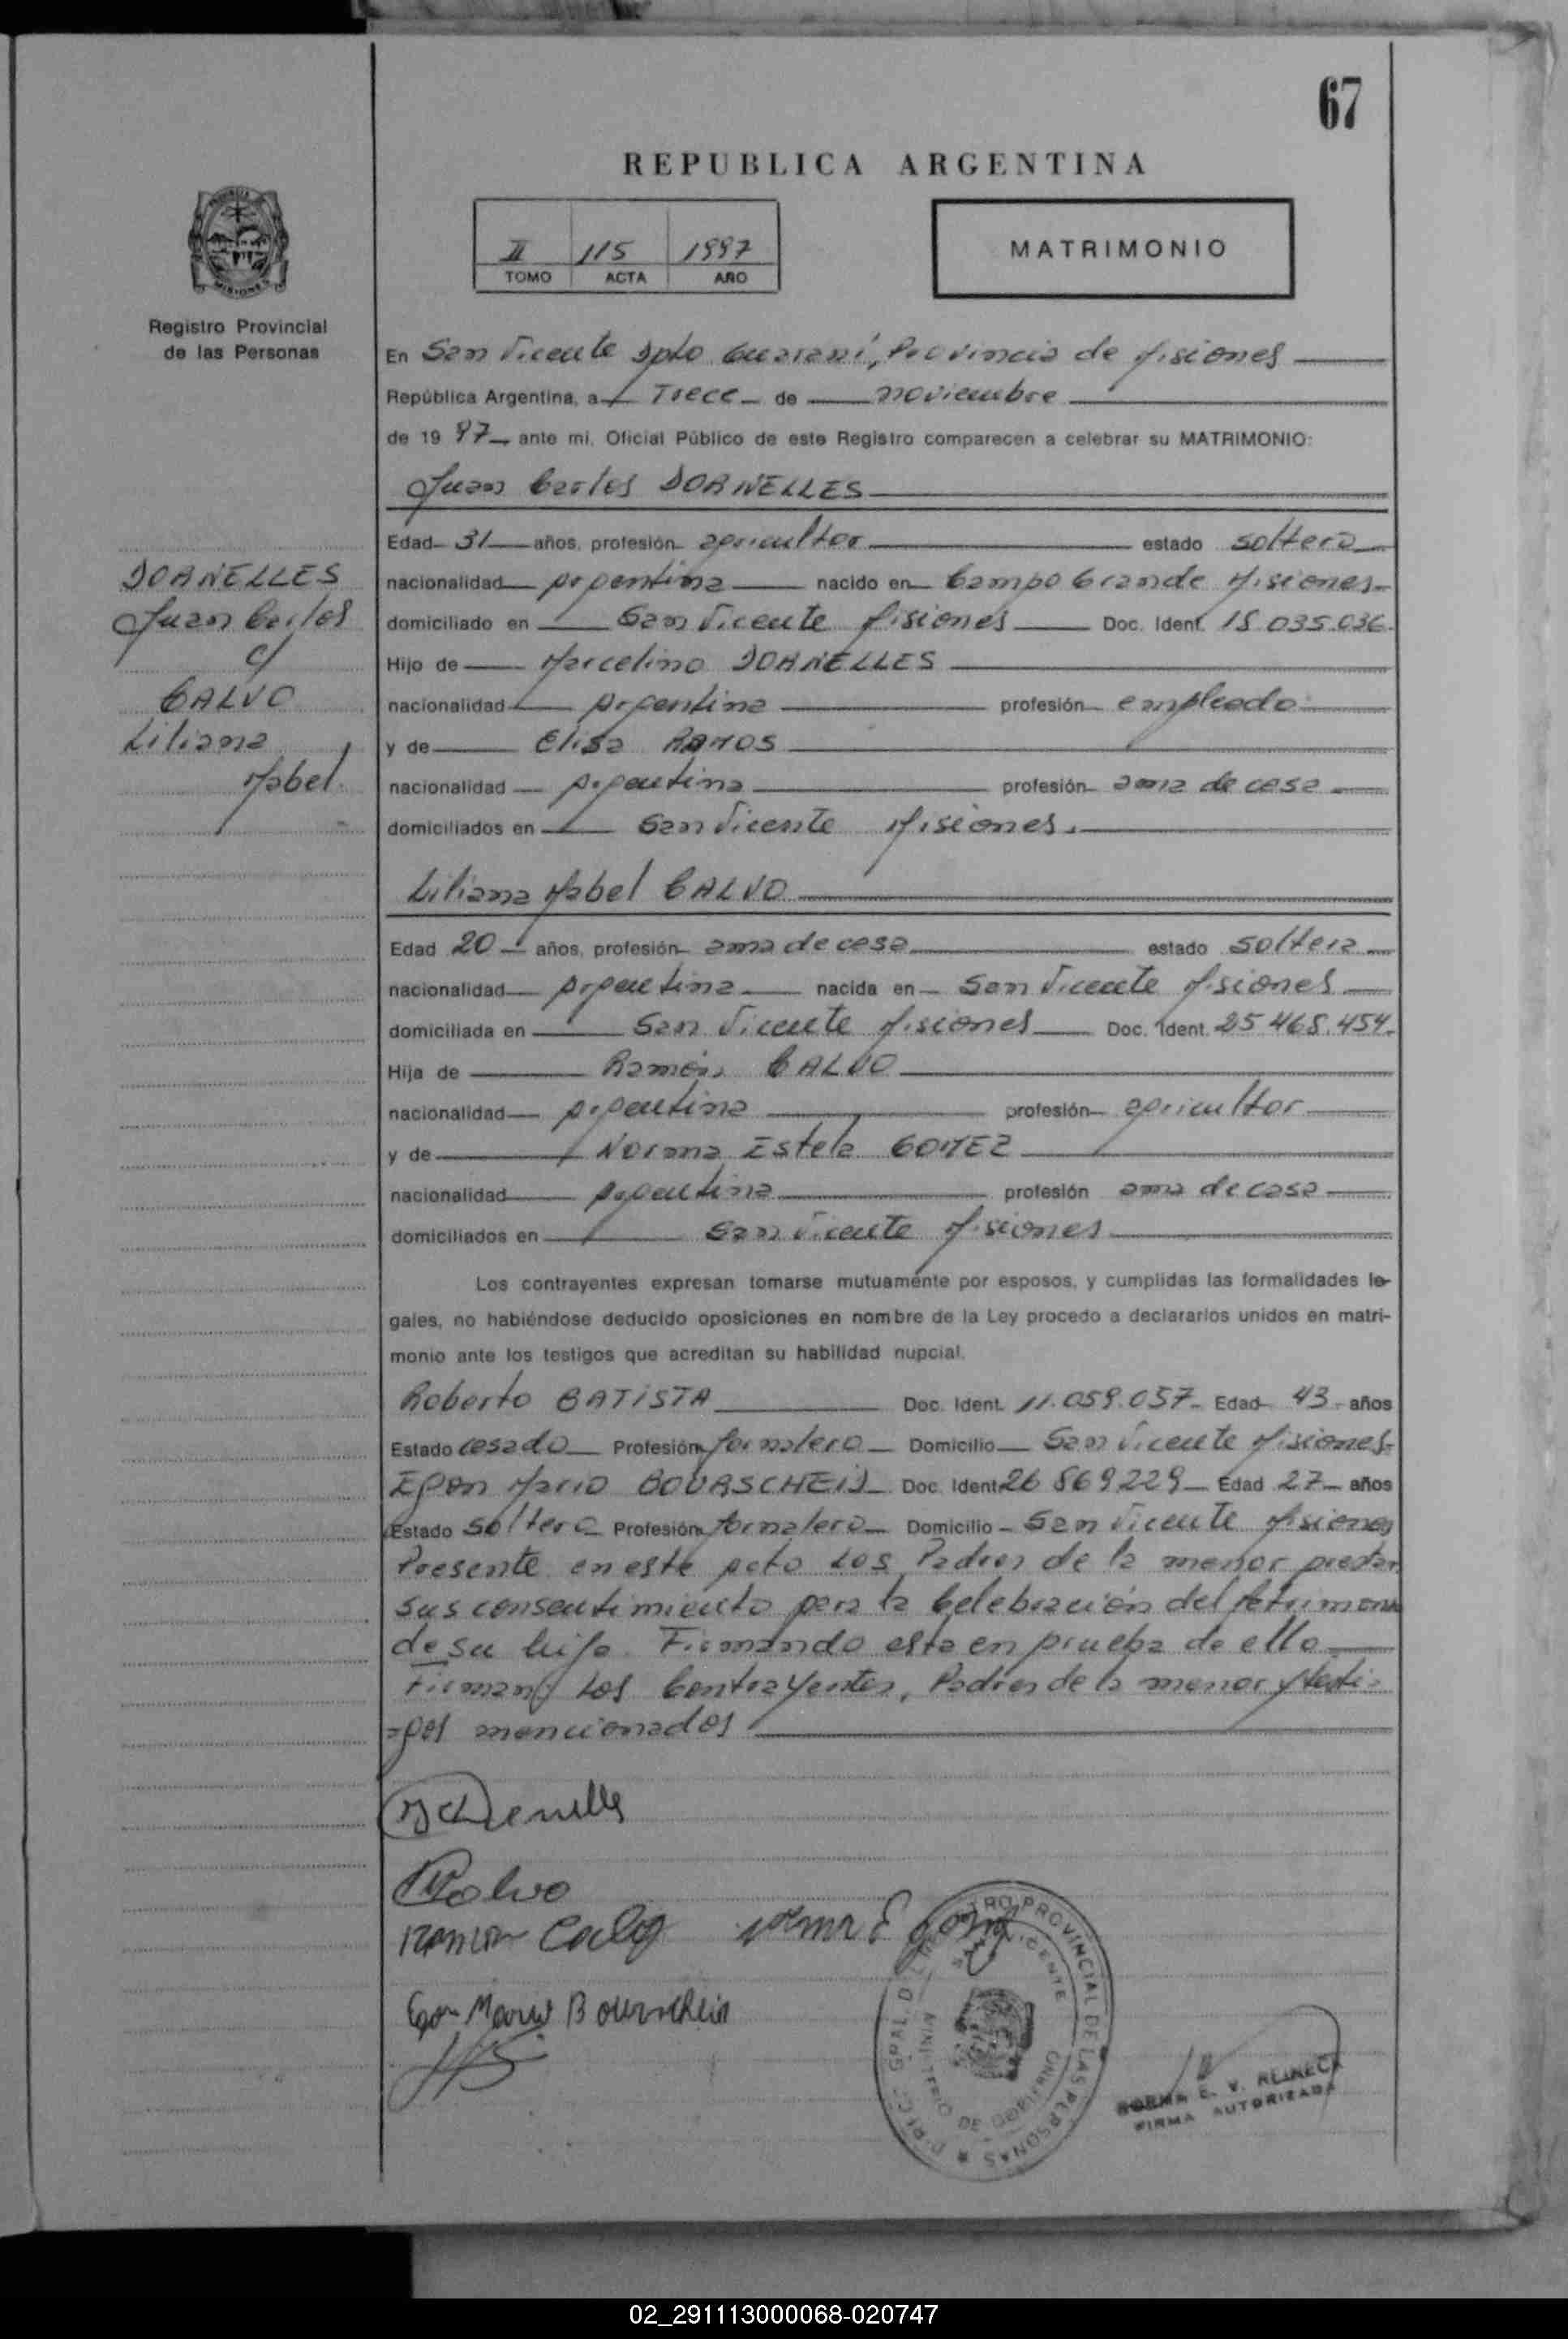 67
REPUBLICA ARGENTINA
II 115 1997
TOMO ACTA AÑO
MATRIMONIO
Registro Provincial
de las Personas
En San Vicente Dpto Guaraní, Provincia de Misiones
República Argentina, a Trece de noviembre
de 1997 ante mi, Oficial Público de este Registro comparecen a celebrar su MATRIMONIO:
Juan Carlos DORNELLES
Edad 31 años, profesión agricultor estado soltero
nacionalidad Argentina nacido en Campo Grande Misiones
domiciliado en San Vicente Misiones Doc. Ident. 18.035.036
Hijo de Marcelino DORNELLES
nacionalidad Argentina profesión empleado
y de Elisa RAMOS
nacionalidad Argentina profesión ama de casa
domiciliados en San Vicente Misiones.
DORNELLES
Juan Carlos
c/
CALVO
Liliana
Mabel
Liliana Mabel CALVO
Edad 20 años, profesión ama de casa estado soltera
nacionalidad Argentina nacida en San Vicente Misiones
domiciliada en San Vicente Misiones Doc. Ident. 25.468.454
Hija de Ramón CALVO
nacionalidad Argentina profesión agricultor
y de Norma Estela GOMEZ
nacionalidad Argentina profesión ama de casa
domiciliados en San Vicente Misiones
Los contrayentes expresan tomarse mutuamente por esposos, y cumplidas las formalidades le-
gales, no habiéndose deducido oposiciones en nombre de la Ley procedo a declararlos unidos en matri-
monio ante los testigos que acreditan su habilidad nupcial.
Roberto BATISTA Doc. Ident. 11.059.057 Edad 43 años
Estado casado Profesión Jornalero Domicilio San Vicente Misiones
Egon Mario BOURSCHEID Doc. Ident. 26 869229 Edad 27 años
Estado soltero Profesión Jornalero Domicilio San Vicente Misiones
Presente en este Acto Los Padres de la menor prestan
sus consentimiento para la Celebración del Matrimonio
de su hija. Firmando esta en prueba de ello
Firman Los Contrayentes, Padres de la menor y testi-
gos mencionados
Calvo
Ramon Calvo Norma E Gomez
Egon Mario Bourscheid
DIREC. GRAL. DEL REGISTRO PROVINCIAL DE LAS PERSONAS
SAN VICENTE
MINISTERIO DE GOBIERNO
NORMA E. V. REINECK
FIRMA AUTORIZADA
02_291113000068-020747